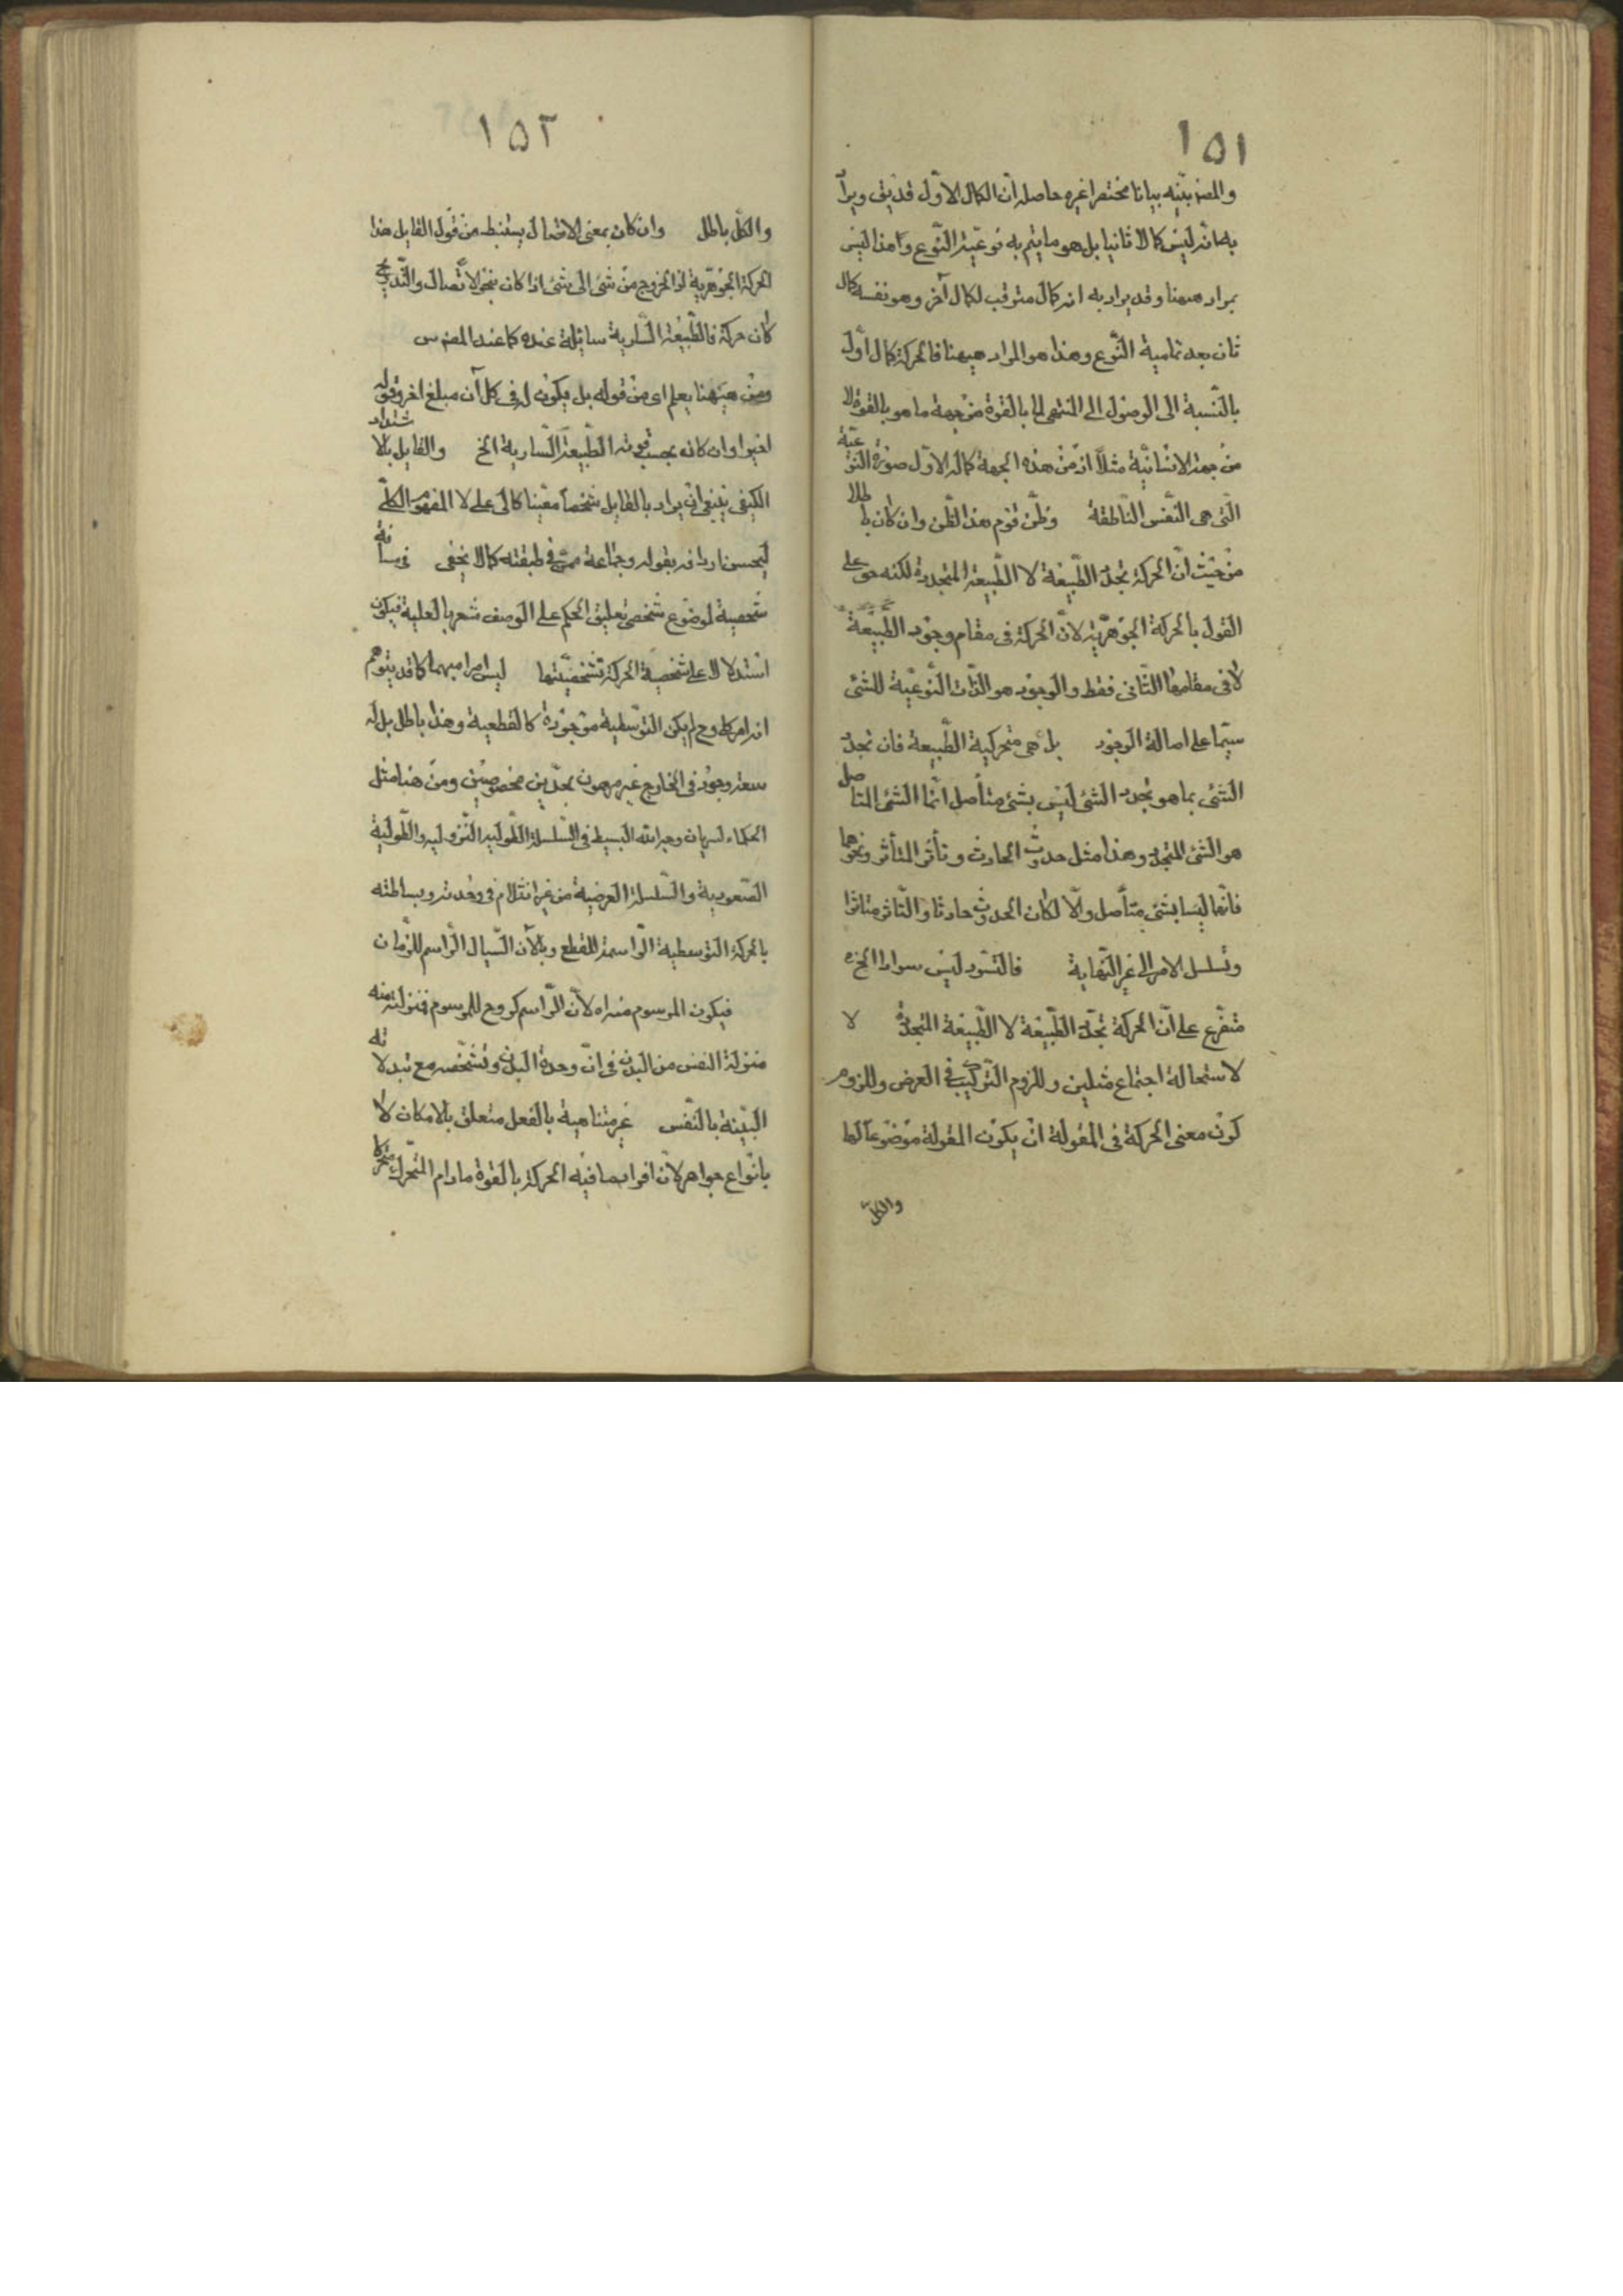 ١٥١
والمص بيّنه بيانا مختصرا غيره حاصله انّ الكمال الاوّل قد يق ويراد
به ما انه ليس كمالا ثانيا بل هو ما يتم به نوعيّة النّوع وهذا ليس
بمراد ههنا وقد يراد به انه كمال مترقب لكمال آخر وهو نفسه كمال
ثان بعد تمامية النّوع وهذا هو المراد ههنا فالحركة كمال اوّل
بالنّسبة الى الوصول الى المنتهى لما بالقوة من جهة ما هو بالقوة لا
من جهة الانسانيّة مثلاً اذ من هذه الجهة كماله الاوّل صورة النّوعيّة
الّتى هى النّفس النّاطقة وظنّ قوم هذا الظّن وان كان باطلا
من حيث انّ الحركة تجدّد الطّبيعة لا الطّبيعة المتجددة لكنه حق على
القول بالحركة الجوهريّة لانّ الحركة فى مقام وجود الطّبيعة
لا فى مقامها الثّانى فقط والوجود هو الذّات النّوعيّة للشئ
سيّما على اصالة الوجود بل هى متحركية الطّبيعة فان تجدّد
الشئى بما هو تجدد الشئ ليس بشئ متأصل انّما الشئ المتاصل
هو الشئ المتجدد وهذا مثل حدوث الحادث وتأثر المتأثر ونحوهما
فانّهما ليسا بشئ متأصل والّا لكان الحدوث حادثا والتّاثر متاثرا
وتسلسل الامر الى غير النّهاية فالتسوّد ليس سوادا الخ ه
متفّرع على انّ الحركة تجدّد الطّبيعة لا الطّبيعة المتجدّدة لا
لاستحالة اجتماع مثلين وللزوم التّركيب فى العرض وللزوم
كون معنى الحركة فى المقولة ان يكون المقولة موضوعاً لها
والكلّ
١٥٢
والكلّ باطل وان كان بمعنى الاتصال يستنبط من قول القايل هذا
الحركة الجوهريّة اذ الخروج من شئ الى شئ اذا كان بنحو الاتّصال والتّدريج
كان حركة فالطّبيعة السّارية سايلة عنده كما عند المص س
ومن ههنا يعلم اى من قوله بل يكون له فى كل آن مبلغ آخر وقوله
اخيرا وان كان بحسب قوته الطّبيعة السّارية الخ والقايل بالاشتداد
الكيفى ينبغى ان يراد بالقايل شخصاً معيّنا كالى على لا المفهوم الكلّى
ليحسن اردافه بقوله وجماعة ممن فى طبقته كما لا يخفى فى مسافة
شخصية لموضوع شخصى تعليق الحكم على الوصف مشعر بالعلية فيكون
استدلالا على شخصية الحركة بتشخصيّتها ليس امرا مبهما كما قد يتوهم
انه امر كلى وح لم يكن التوسّطية موجودة كالقطعية وهذا باطل بل له
سعة وجود فى الخارج غير مرهون بحدّين مخصوصين ومن هنا مثل
الحكماء لسريان وجه الله البسيط فى السّلسلة الطّولية النّزولية والطّولية
الصّعودية والسّلسلة العرضية من غير انثلام فى وحدته وبساطته
بالحركة التوسطية الرّاسمة للقطع وبالآن السّيال الرّاسم للزمان
فيكون المرسوم منه اه لانّ الرّاسم كروح للمرسوم فمنزلته منه
منزلة النفس من البدن فى انّ وحدة البدن وتشخّصه مع تبدلاته
البيّنة بالنّفس غير متناهية بالفعل متعلق بالامكان لا
بانواع جواهر لانّ افراد ما فيه الحركة بالقوة ما دام المتحرك متحركا